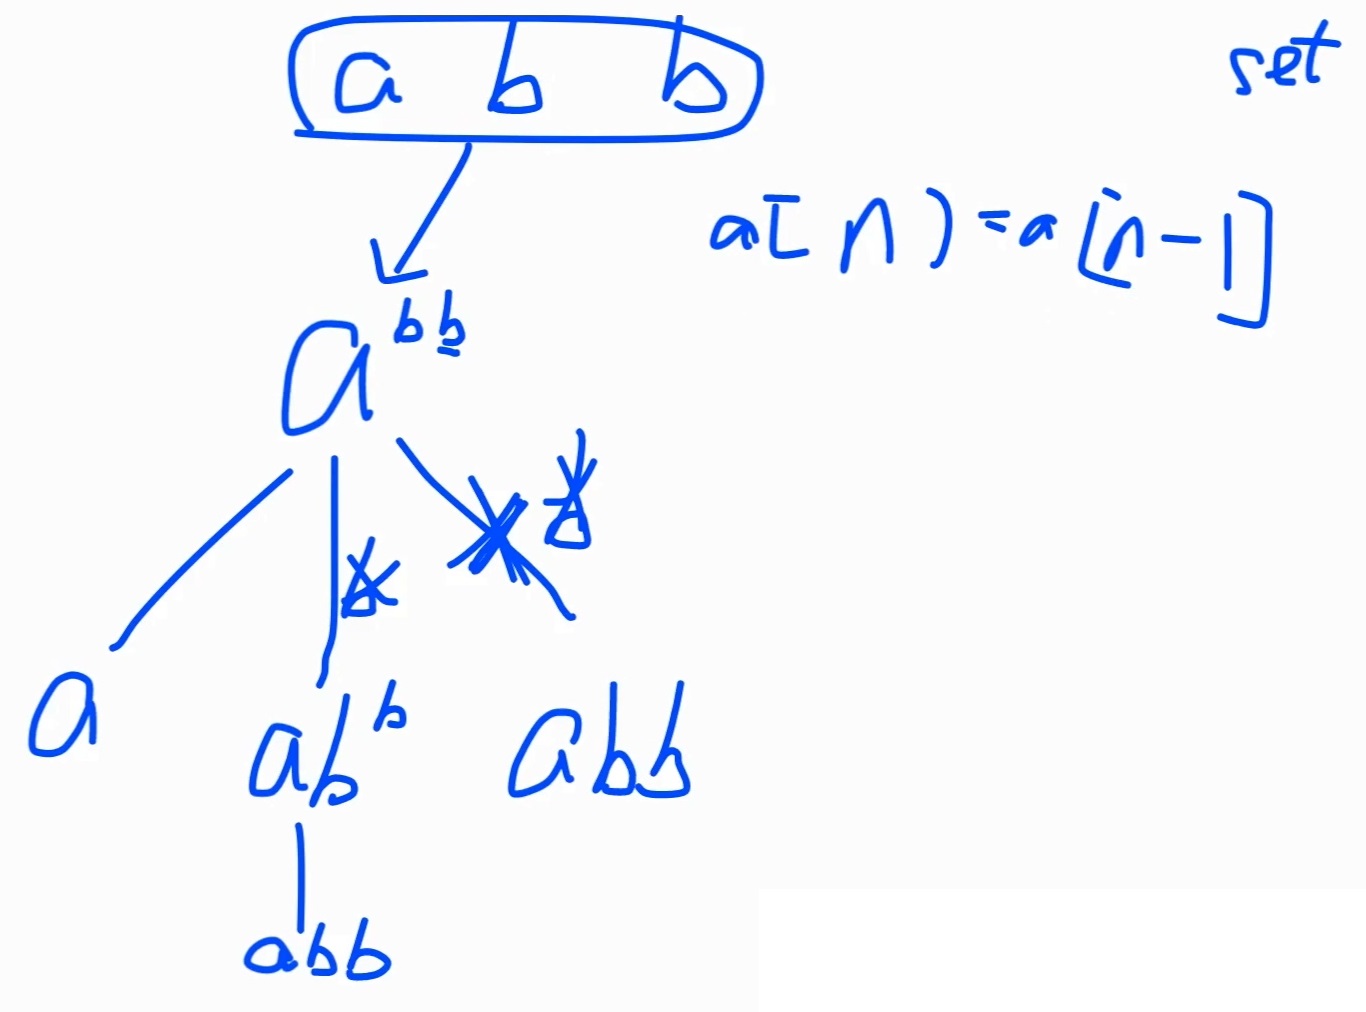 a b b
set
a[n)=a[n-1]
a bb
b
b
a
ab b
abb
abb